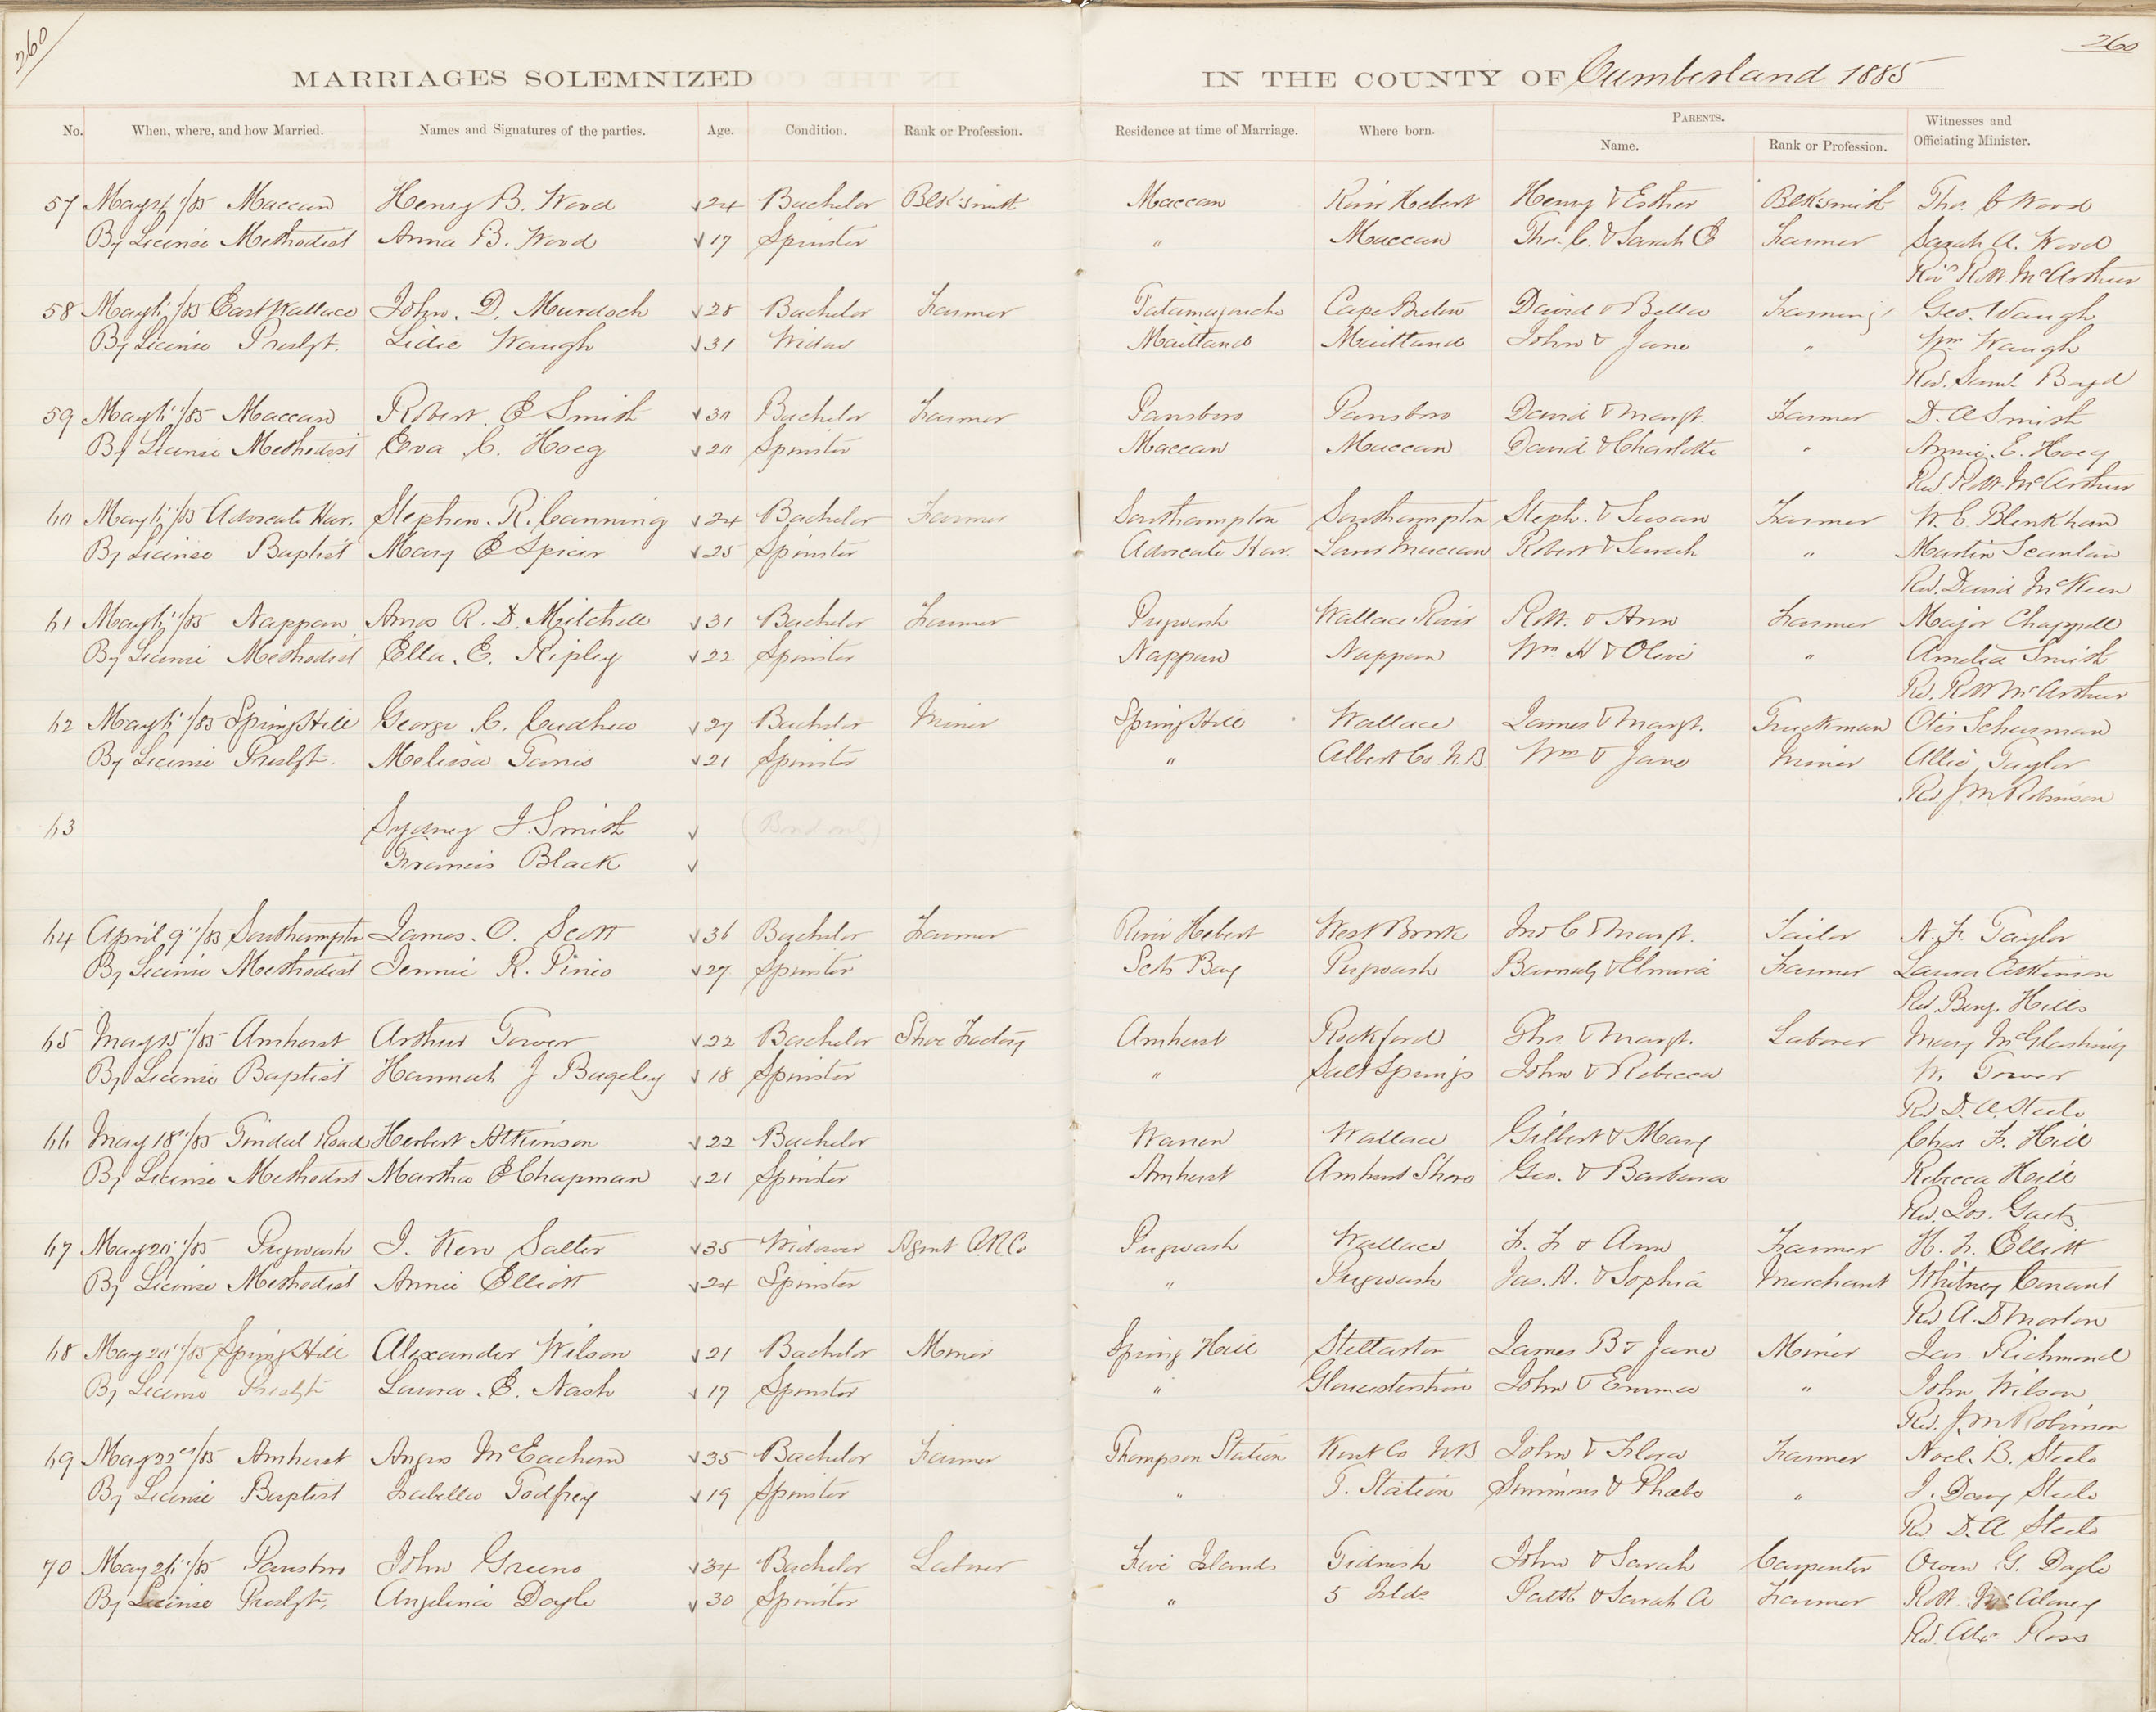 260
260
MARRIAGES SOLEMNIZED IN THE COUNTY OF Cumberland 1885
No. When, where, and how Married. Names and Signatures of the parties. Age. Condition. Rank or Profession. Residence at time of Marriage. Where born. PARENTS. Name. Rank or Profession. Witnesses and Officiating Minister.
57 Maccan Henry B. Wood 24 Bachelor Blksmith Maccan River Hebert Henry & Esther Blksmith Tho. C Wood
By License Methodist Anna B. Wood 17 Spinster " Maccan Tho. C. & Sarah E Farmer Sarah A. Wood
Revd Robt. McArthur
58 East Wallace John. D. Murdoch 28 Bachelor Farmer Tatamagouche Cape Breton David & Bella Farming Geo. Waugh
By License Presbyt. Lidie Waugh 31 Widow Maitland Maitland John & Jane " Wm Waugh
Rev. Saml. Boyd
59 Maccan Robert. E Smith 30 Bachelor Farmer Parrsboro Parrsboro David & Margt. Farmer D. A Smith
By License Methodist Eva C. Hoeg 20 Spinster Maccan Maccan David & Charlotte " Annie. E. Hoeg
Rev. Robt. McArthur
60 Advocate Har. Stephen. R. Canning 24 Bachelor Farmer Southampton Southampton Steph. & Susan Farmer W. C. Blenkhan
By License Baptist Mary E Spicer 25 Spinster Advocate Har. Lower Maccan Robert & Sarah " Martin Scanlan
Rev. David McKeen
61 Nappan Amos R. D. Mitchell 31 Bachelor Farmer Pugwash Wallace River Robt. & Ann Farmer Major Chappell
By License Methodist Ella. E. Ripley 22 Spinster Nappan Nappan Wm H & Olive " Amelia Smith
Rev. Robt McArthur
62 Spring Hill George. C. 27 Bachelor Miner Spring Hill Wallace James & Margt. Truckman Otis Schurman
By License Presbyt. Melissa 21 Spinster " Albert Co. N.B. Wm & Jane Miner Allie Taylor
Rev J M Robinson
63 Sydney J. Smith (Bond only)
Francis Black
64 April 9"/85 Southampton James. O. Scott 36 Bachelor Farmer River Hebert West Brook Jno C & Margt. Tailor N. F. Taylor
By License Methodist Jennie R. Pineo 27 Spinster Scots Bay Pugwash Barnaby & Elmira Farmer Laura Atkinson
Rev. Benj. Hills
65 May 15"/85 Amherst Arthur Tower 22 Bachelor Shoe Factory Amherst Rockford Tho. & Margt. Laborer Mary McGlashing
By License Baptist Hannah J Bugeley 18 Spinster " Salt Springs John & Rebecca W. Tower
Rev D. A. Steele
66 May 18"/85 Tindal Road Herbert Atkinson 22 Bachelor Warren Wallace Gilbert & Mary Chas F. Hill
By License Methodist Martha E Chapman 21 Spinster Amherst Amherst Shore Geo. & Barbara Rebecca Hill
Rev. Jos. Gaetz
67 May 20"/85 Pugwash J. Ken Salter 35 Widower Agent Pugwash Wallace F. F & Ann Farmer H. F. Elliott
By License Methodist Annie Elliott 24 Spinster " Pugwash Jas. A. & Sophia Merchant Whitney Conant
Rev A. D Morton
68 May 20"/85 Spring Hill Alexander Wilson 21 Bachelor Miner Spring Hill Stellarton James B & Jane Miner Jas. Richmond
By License Presbyt Laura. E. Nash 17 Spinster " Gloucestershire John & Emma " John Wilson
Rev. J M Robinson
69 May 22"/85 Amherst Angus McEachern 35 Bachelor Farmer Thompson Station Kent Co N.B John & Flora Farmer Noel. B. Steele
By License Baptist Isabella Godfrey 19 Spinster " T. Station Simmons & Phebe " J. Davy Steele
Rev. D. A. Steele
70 Parrsboro John Greeno 34 Bachelor Laborer Five Islands Tidnish John & Sarah Carpenter Owen G. Doyle
By License Presbyt. Angelina Doyle 30 Spinster " 5 Islds Patk & Sarah A Farmer Robt. McAloney
Rev. Alex Ross